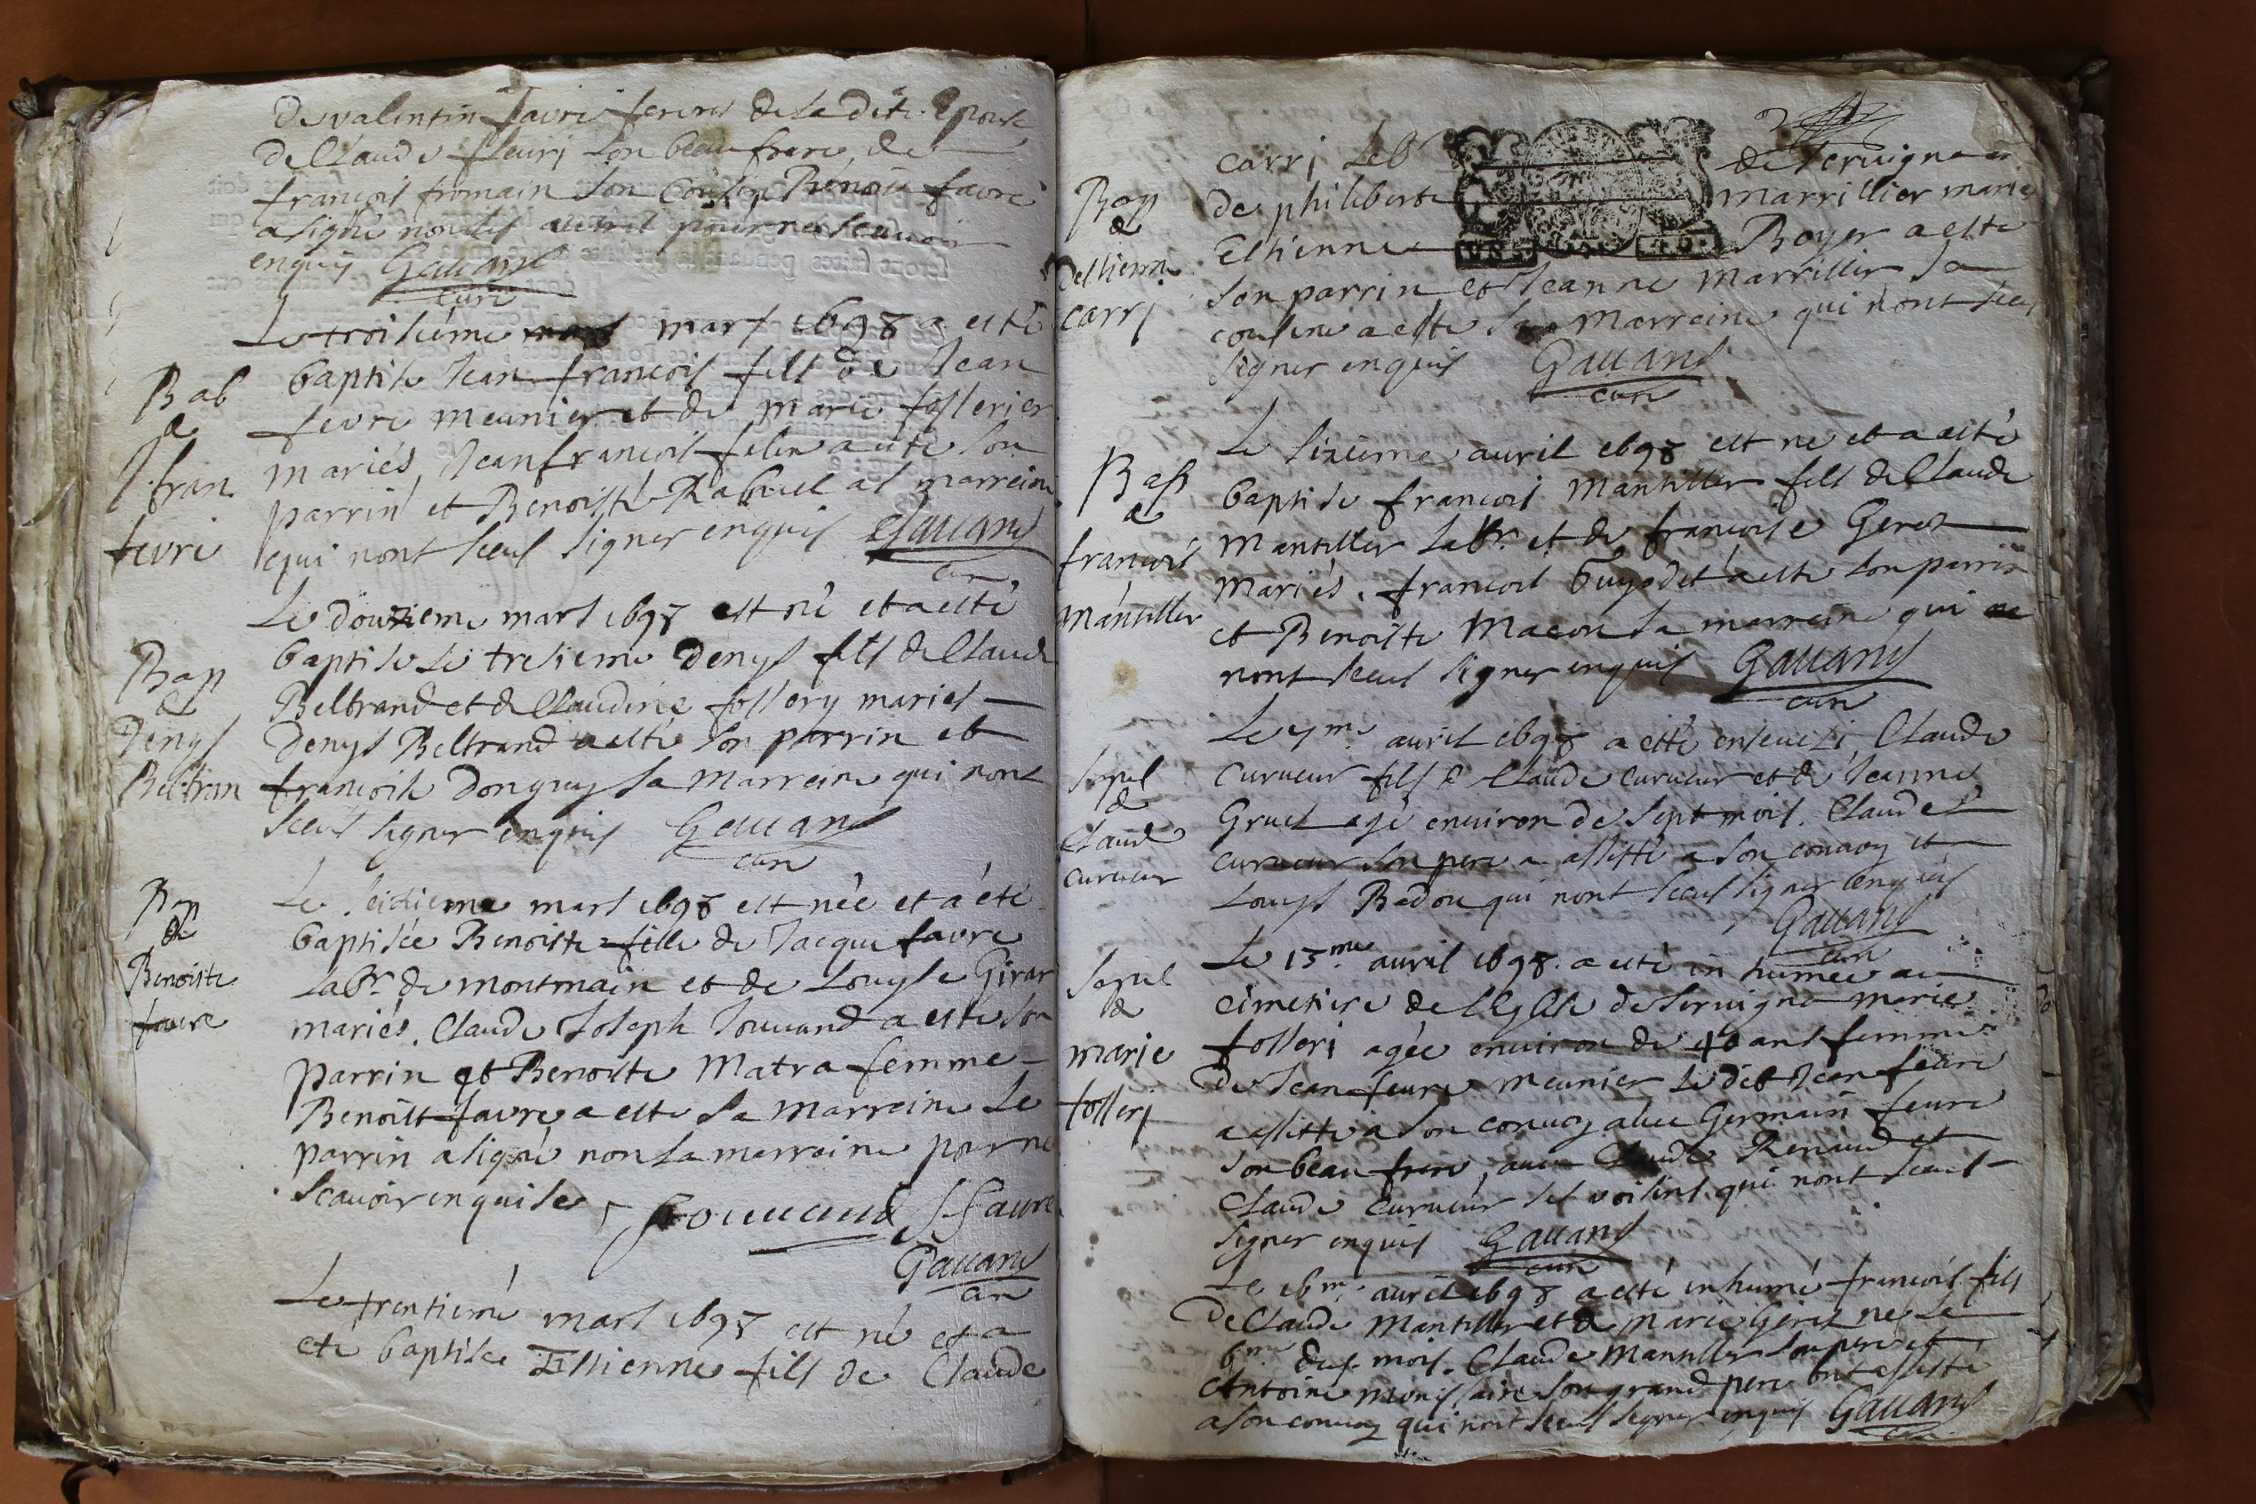 de valentin favre freres de la dite Epouse
de Claude fleuri son beaufrere, de
françois fromain son cousin Benoit favre
a signé non les autres pour ne scavoir
enquis Gauand
curé
Le troisieme mars 1698 a esté
Bab
de
J. fran.
fevre
baptisé Jean françois fils de Jean
fevre meunier et de marie follerier
mariés Jean françois felin a eté son
parrin et Benoiste Rabuel as marreine
qui nont sceus signer enquis Gauand
cure
Le douzieme mars 1698 est né et a esté
Bap
de
Denys
Beltran
baptisé le tresieme Denys fils de Claude
Beltrand et de Claudine follery mariés
Denys Beltrand a esté son parrin et
françoise Donguy sa marreine qui nont
sceus signer enquis Gauand
cure
Bap
de
Benoiste
favre
Le seisieme mars 1698 est née et a été
baptisée Benoiste fille de Jacque favre
labr. de montmain et de Louyse Girar
mariés. Claude Joseph Jouuand a esté son
parrin et Benoiste Matra femme
Benoist favre a esté sa marreine le
parrin a signé non la marreine pour ne
scavoir enquise Jouuaud J faure
Gauand
cure
Le trentieme mars 1698 est né et a
eté baptisée Estienne fils de Claude
Bap
de
Estienne
carri
carri labr de servigna
de philiberte marrillier marie
Estienne Royer a esté
son parrin et Jeanne marrillier sa
cousine a esté sa marreine qui nont sceu
signer enquis Gauand
cure
Bap
de
françois
Mantillier
Le sixieme avril 1698 est né et a esté
baptisé françois Mantiller fils de Claude
Mantiller labr. et de françoise Geres
mariés. françois Guyodet a esté son parrin
et Benoiste Macon sa marreine qui
nont sceus signer enquis Gauand
cure
Sepul
de
Claude
curueur
Le 7me avril 1698 a esté enseveli Claude
curueur fils de Claude curueur et de Jeanne
Gruel agé environ de sept mois. Claude
curueur son pere a assisté a son convoy et
Louys Badou qui nont sceus signer enquis
Gauand
cure
Sepul
de
marie
folleri
Le 15me avril 1698 a esté inhumée au
cimetiere de leglise de servigna marie
folleri agée environ de 40 ans femme
de Jean fevre meunier le dit Jean fevre
a assisté a son convoy avec Germain fevre
son beau frere, avec Claude Renaud et
Claude Curueur ses voisins qui nont sceus
signer enquis Gauand
cure
Le 16me avril 1698 a esté inhumé françois fils
de Claude Mantiller et de marie Geres né le
6me du mois. Claude Mantiller son pere et
Antoine son grand pere ont assisté
a son convoy qui nont sceus signer enquis Gauand
cure